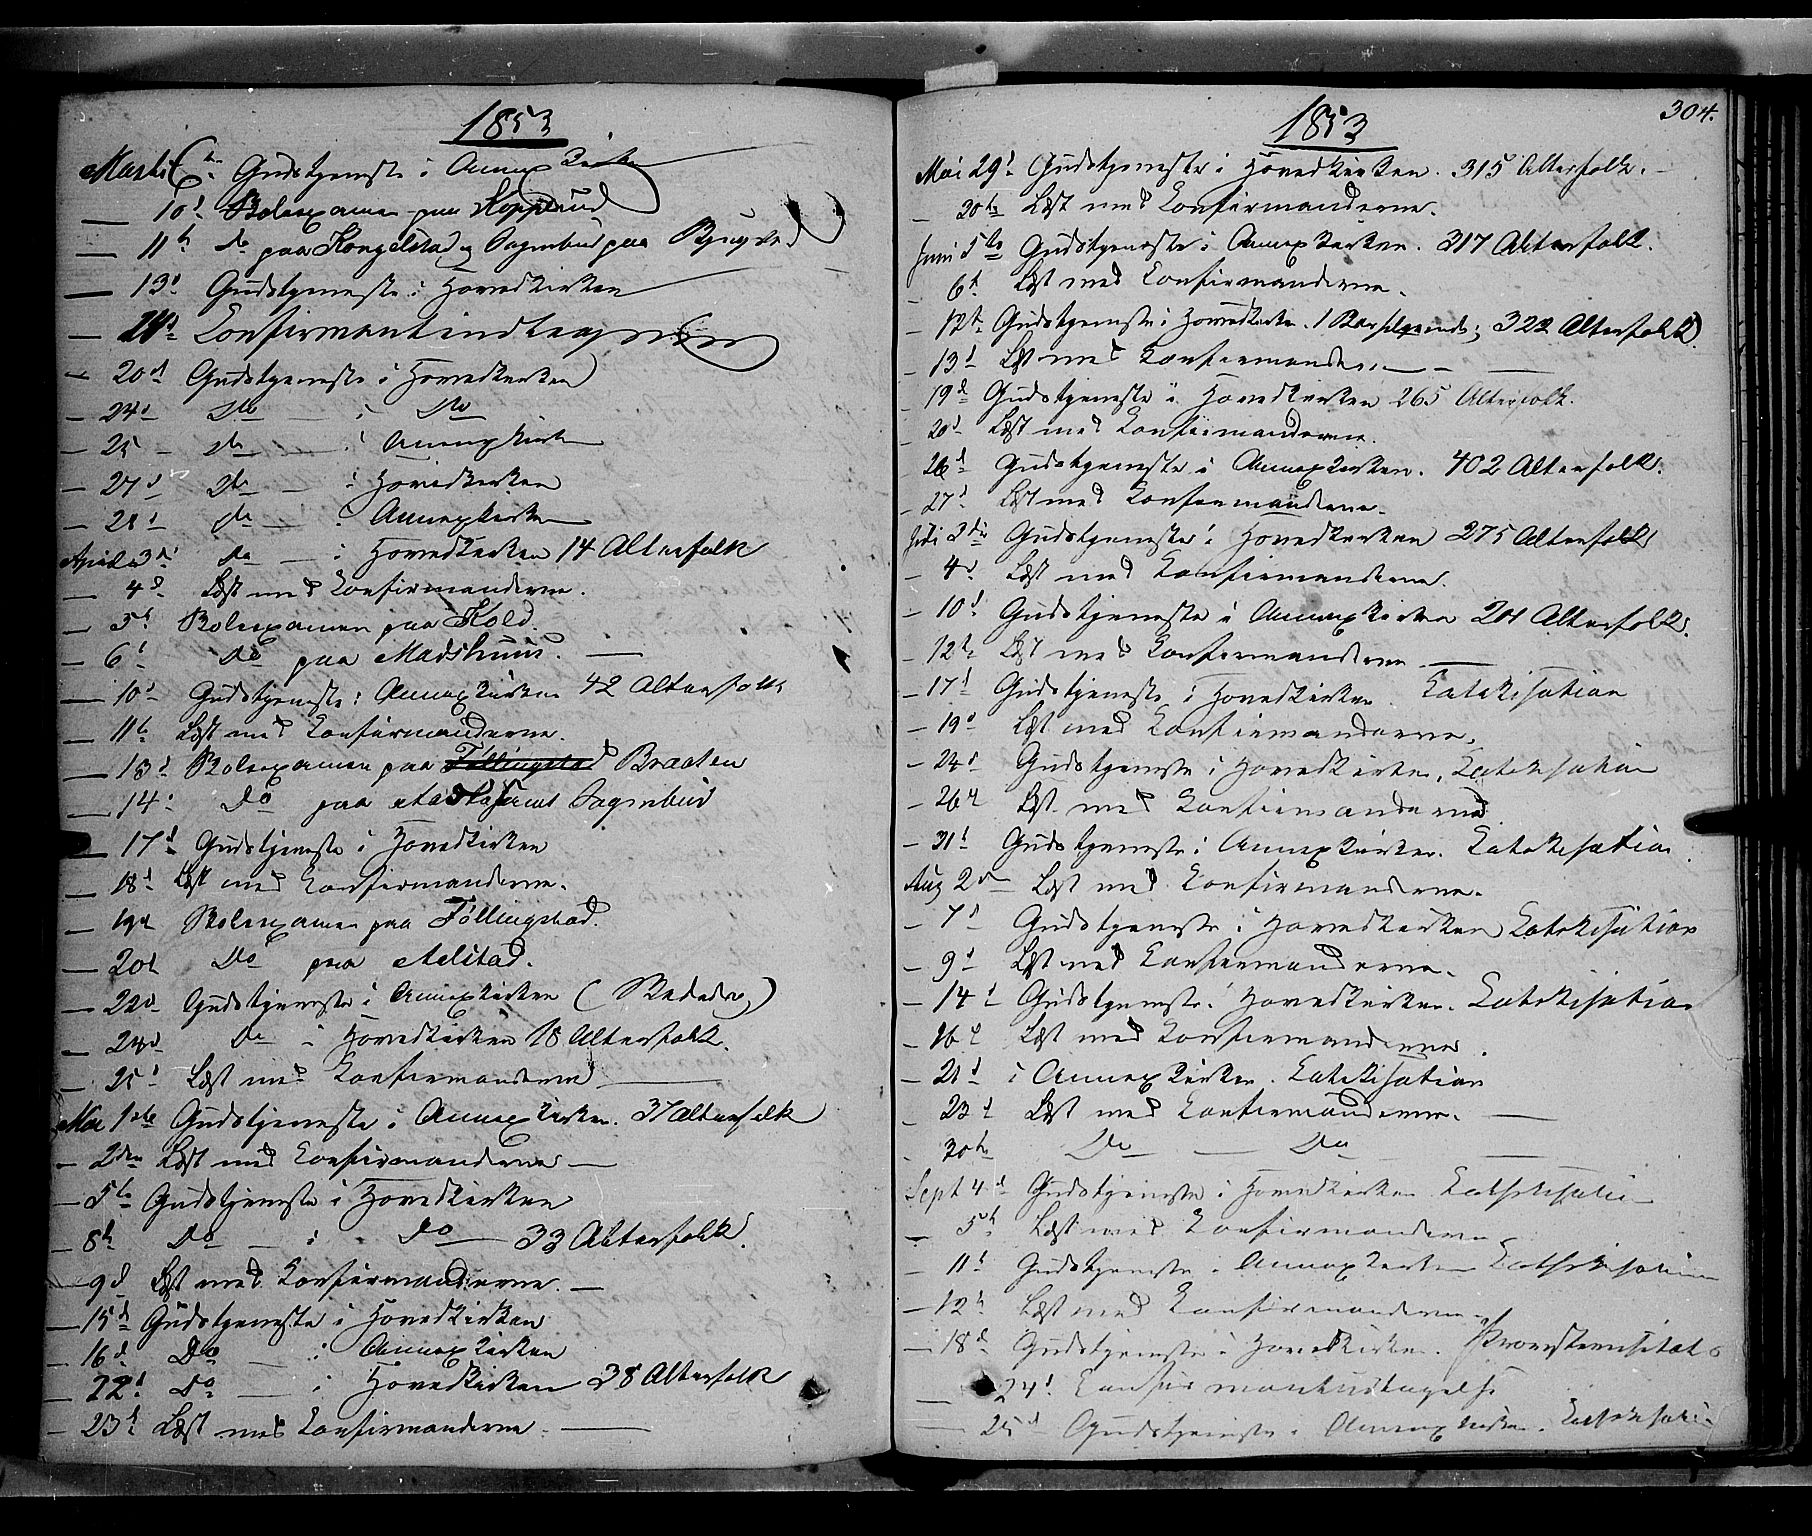 1853
Marts 6te Gudstjeneste i Annexkirken
— 10d Skoleexamen paa Kopplund
— 11te do paa Kongelstad og Sognebud paa
— 13d Gudstjeneste i Hovedkirken
— Confirmantindtegnelse
— 20d Gudstjeneste i Hovedkirken
— 24d Do — i Do
— 25 — do — i Annexkirken
— 27d Do — i Hovedkirken
— 28d do — i Annexkirken
April 3d do — i Hovedkirken 14 Altersfolk
— 4d Læst med Konfirmanderne.
— 5t Skoleexamen paa Kold.
— 6t Do paa Madshuus. —
— 10d Gudstjeneste i Annexkirken 42 Altersfolk
— 11te Læst med Konfirmanderne.
— 13d Skoleexamen paa Föllingstad Braaten
— 14d Do paa samt Sognebud
— 17d Gudstjeneste i Hovedkirken
— 18d Læst med Konfirmanderne.
— 19d Skoleexamen paa Föllingstad.
— 20d Do paa Aelstad.
— 22d Gudstjeneste i Annexkirken (Bededag)
— 24d Do i Hovedkirken 18 Altersfolk.
— 25d Læst med Konfirmanderne —
Mai 1ste Gudstjeneste i Annexkirken. 37 Altersfolk
— 2den Læst med Confirmanderne —
— 5te Gudstjeneste i Hovedkirken
— 8de Do — i do — 33 Altersfolk.
— 9d Læst med Konfirmanderne. —
— 15d Gudstjeneste i Hovedkirken
— 16d Do — i Annexkirken
— 22d Do — i Hovedkirken 38 Altersfolk
— 23d Læst med Confirmanderne. —
1853
304.
Mai 29d Gudstjeneste i Hovedkirken. 315 Altersfolk. —
— 30te Læst med Confirmanderne.
Juni 5te Gudstjeneste i Annexkirken. 317 Altersfolk.
— 6t Læst med Confirmanderne.
— 12te Gudstjeneste i Hovedkirken. 1 ; 322 Altersfolk.
— 13d Læst med Konfirmanderne — —
— 19d Gudstjeneste i Hovedkirken 265 Altersfolk.
— 20d Læst med Konfirmanderne.
— 26d Gudstjeneste i Annexkirken. 402 Altersfolk.
— 27d Læst med Konfirmanderne.
Juli 3die Gudstjeneste i Hovedkirken 275 Altersfolk
— 4d Læst med Konfirmanderne.
— 10d Gudstjeneste i Annexkirken Altersfolk.
— 12te Læst med Konfirmanderne —
— 17d Gudstjeneste i Hovedkirken. Katekisation
— 19d Læst med Konfirmanderne.
— 24d Gudstjeneste i Hovedkirken. Katekisation
— 26d Læst med Konfirmanderne
— 31d Gudstjeneste i Annexkirken. Katekisation.
Aug 2d Læst med Confirmanderne.
— 7d Gudstjeneste i Hovedkirken Katekisation
— 9d Læst med Konfirmanderne.
— 14d Gudstjeneste i Hovedkirken. Katekisation
— 16d Læst med Konfirmanderne.
— 21d i Annexkirken. Katekisation
— 23d Læst med Konfirmanderne. —
— 30te Do — Do —
Sept 4d Gudstjeneste i Hovedkirken Katekisation
— 5t Læst med Konfirmanderne
— 11t Gudstjeneste i Annexkirken Katekisation
— 12t Læst med Konfirmanderne.
— 18d Gudstjeneste i Hovedkirken. Provstevisitats
— 24d Confirmantudtagelse
— 25d Gudstjeneste i Annexkirken. Katekisation